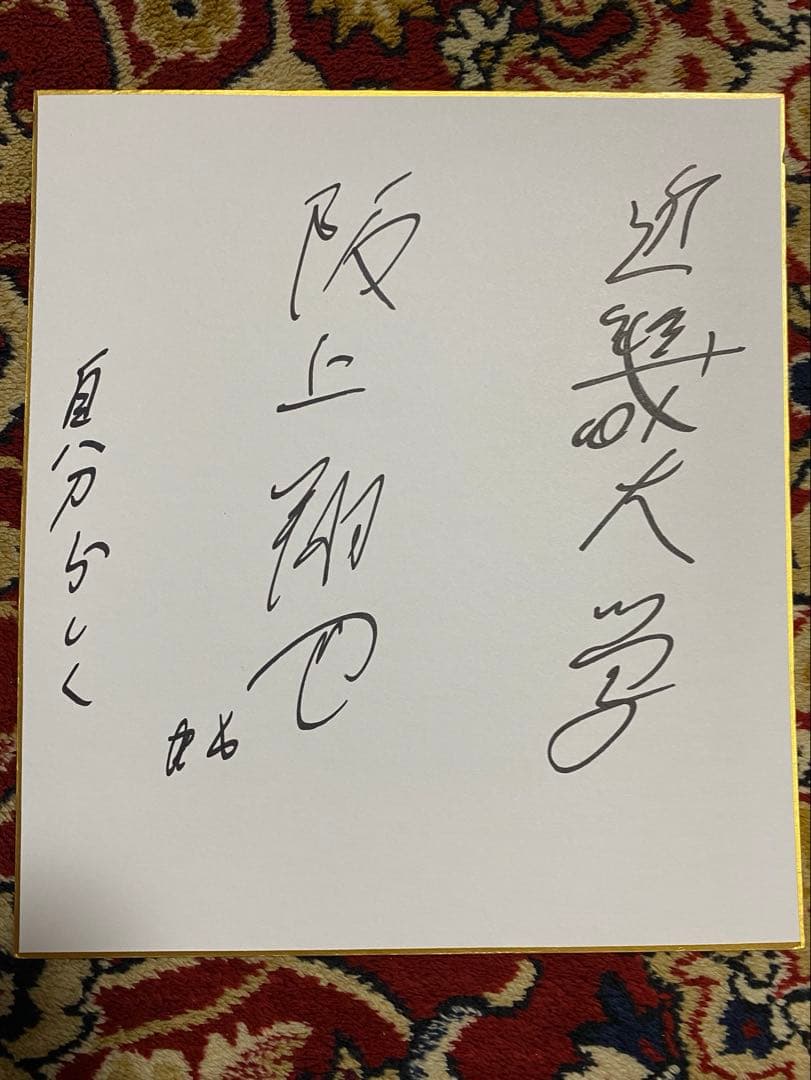 近畿大学
阪上翔也
自分らしく